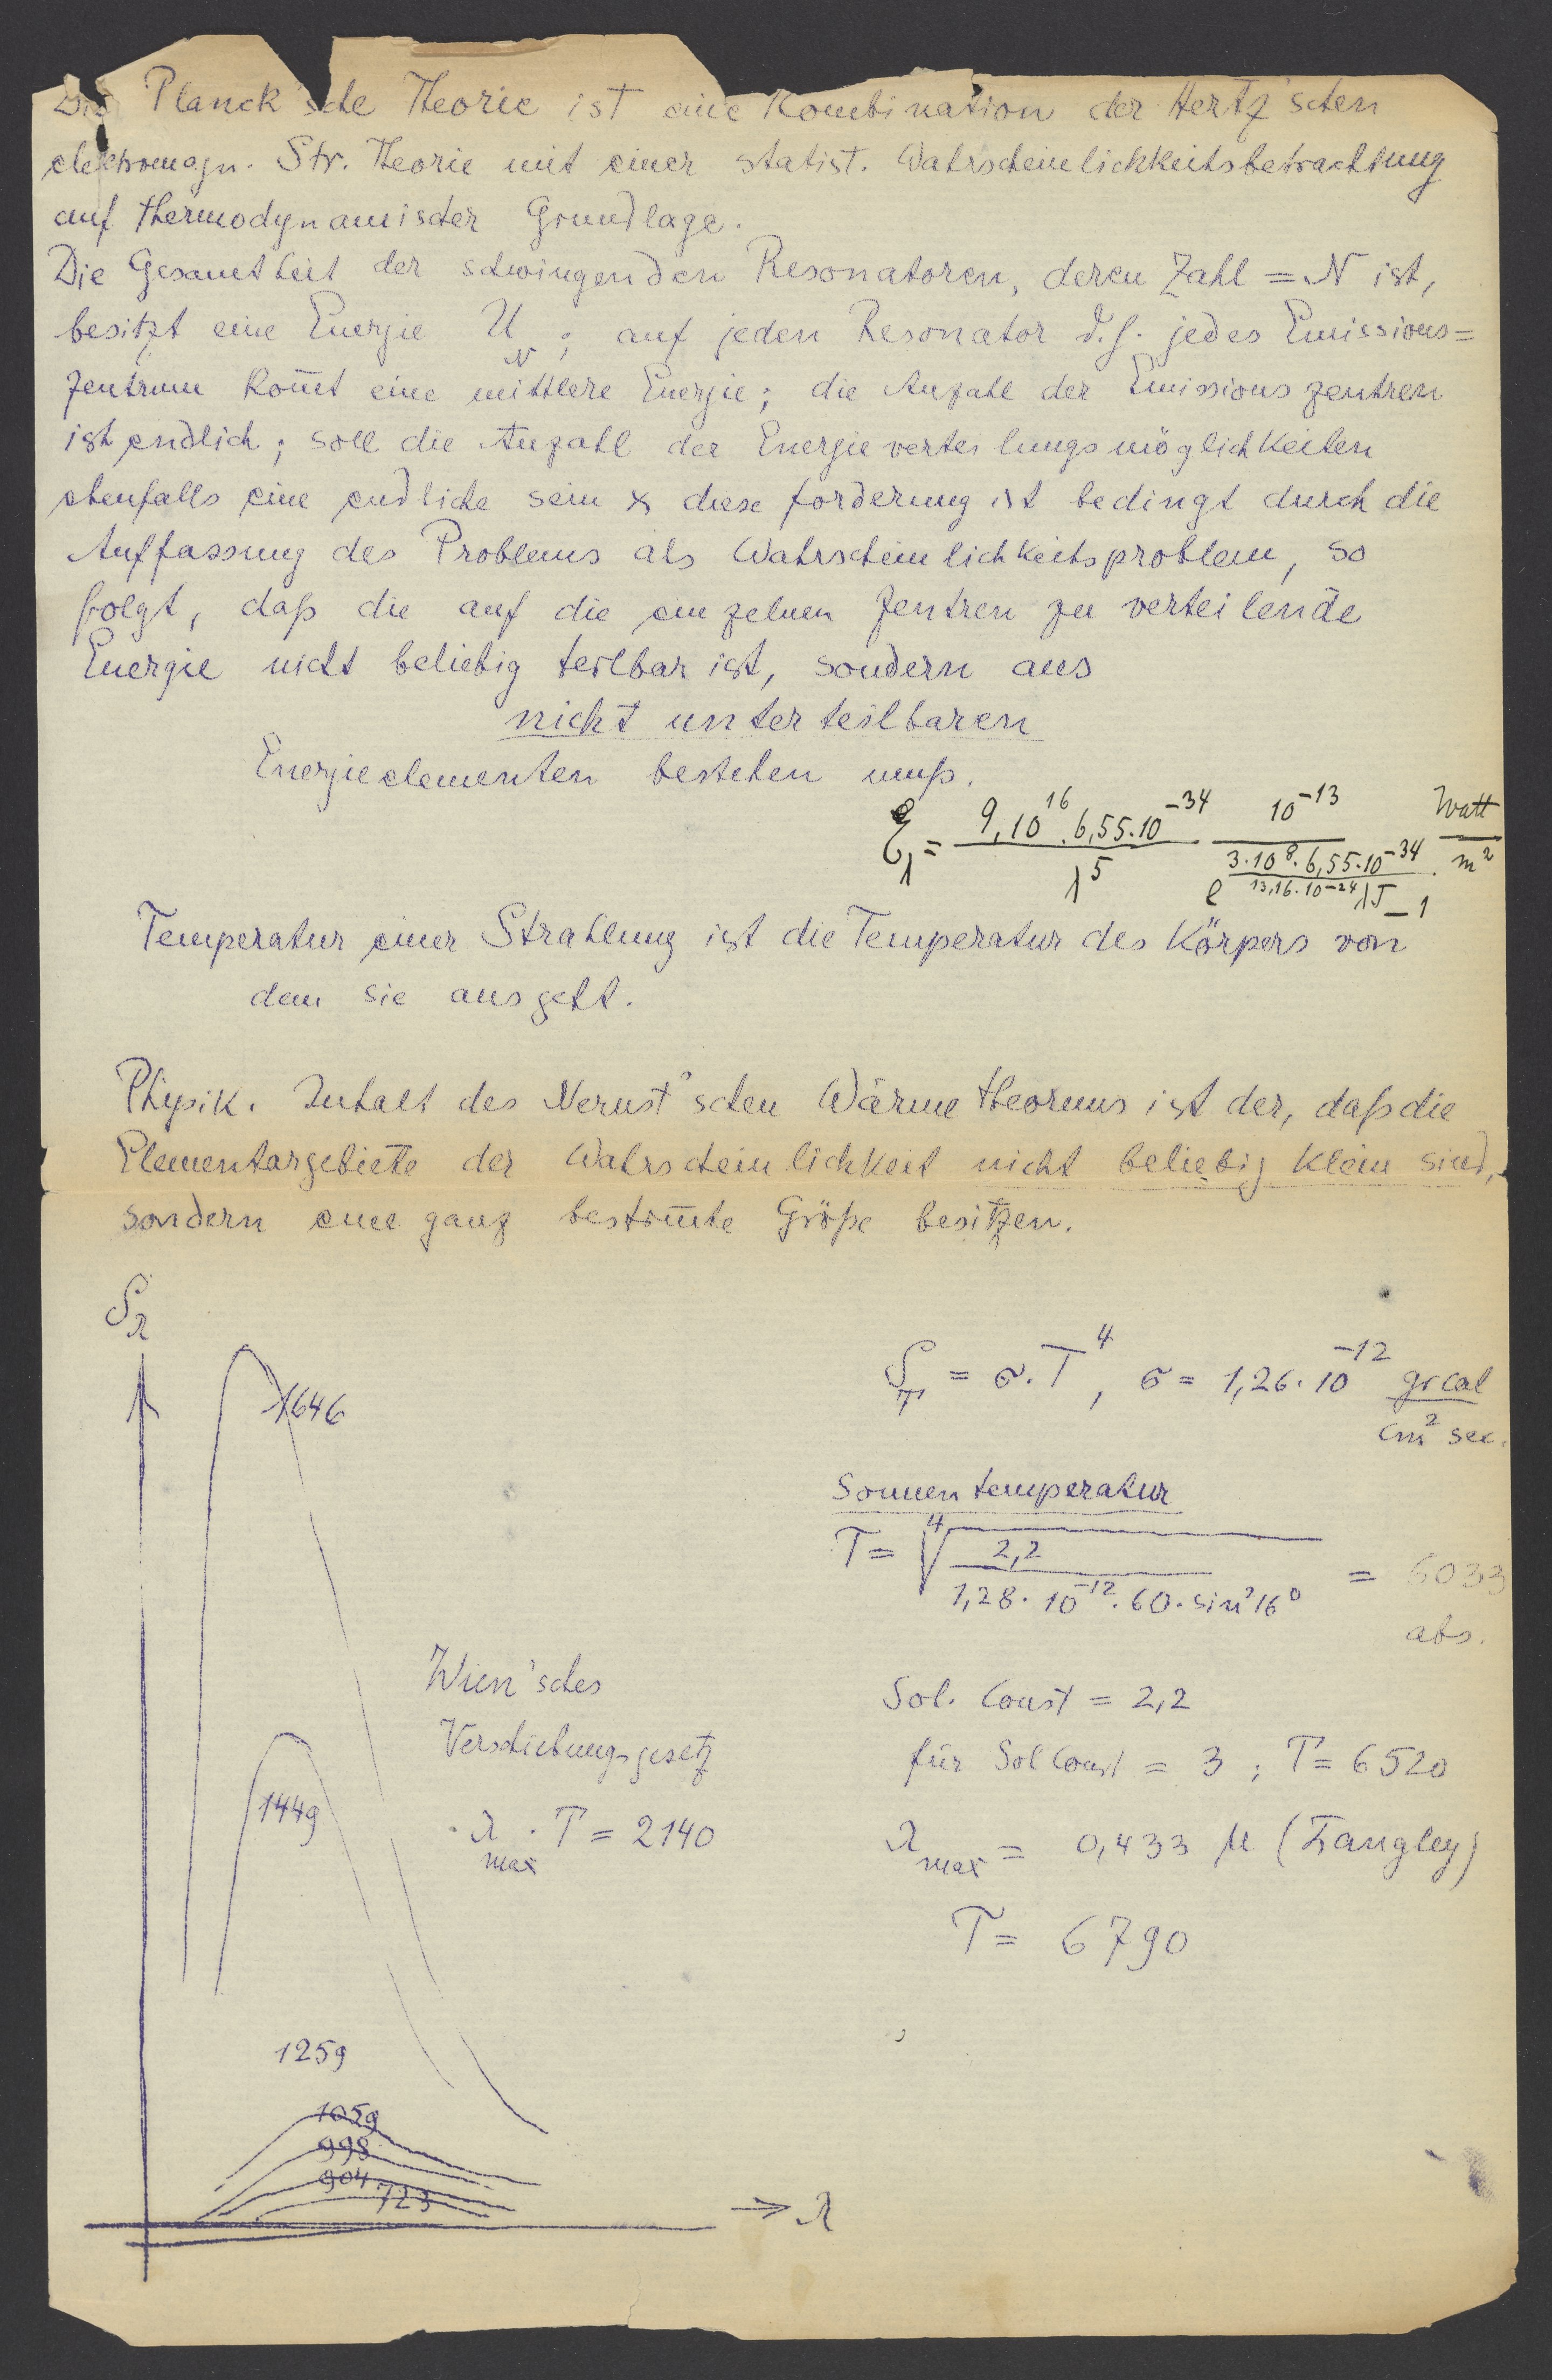 Die Planck'sche Theorie ist eine Kombination der Hertz'schen
elektromagn. Str. Theorie mit einer statist. Wahrscheinlichkeitsbetrachtung
auf thermodynamischer Grundlage.
Die Gesamtheit der schwingenden Resonatoren, deren Zahl = N ist,
besitzt eine Energie U_N ; auf jeden Resonator d.h. jedes Emissions=
zentrum kom̅t eine mittlere Energie; die Anzahl der Emissionszentren
ist endlich; soll die Anzahl der Energieverteilungsmöglichkeiten
ebenfalls eine endliche sein & diese Forderung ist bedingt durch die
Auffassung des Problems als Wahrscheinlichkeitsproblem, so
folgt, daß die auf die einzelnen Zentren zu verteilende
Energie nicht beliebig teilbar ist, sondern aus
nicht unterteilbaren
Energieelementen bestehen muß.
E_λ = 9.10^16 . 6,55.10^-34 / λ^5 . 10^-13 / e^(3.10^8 . 6,55.10^-34 / 13,16.10^-24 λT) - 1 . Watt / m^2
Temperatur einer Strahlung ist die Temperatur des Körpers von
dem sie ausgeht.
Physik. Inhalt des Nernst'schen Wärmetheorems ist der, daß die
Elementargebiete der Wahrscheinlichkeit nicht beliebig klein sind,
sondern eine ganz bestim̅te Größe besitzen.
S_λ
1646
1449
1259
1059
998
904
723
→ λ
Wien'sches
Verschiebungsgesetz
λ_max . T = 2140
S_T = σ.T^4, σ = 1,26.10^-12 grcal / cm^2 sec.
Sonnentemperatur
T = ∜(2,2 / 1,28.10^-12 . 60 . sin^2 16^0) = 6033
abs.
Sol. Const = 2,2
für Sol Const = 3 ; T = 6520
λ_max = 0,433 μ (Langley)
T = 6790